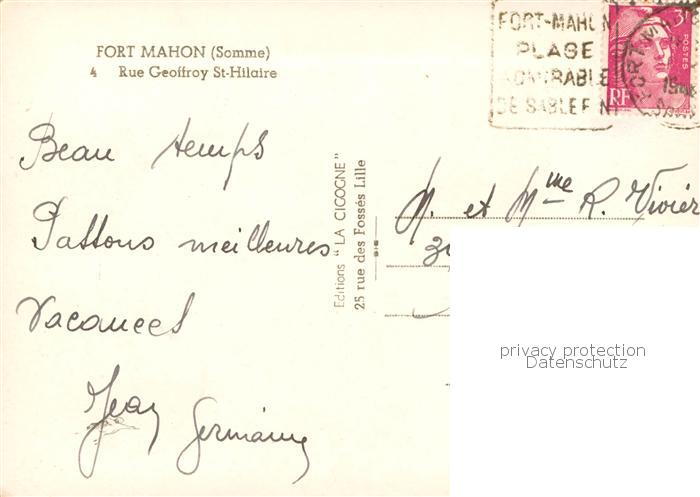 FORT MAHON (Somme)
4 Rue Geoffroy St-Hilaire
FORT-MAHON
PLAGE
ADMIRABLE
DE SABLE FIN
3F
POSTES
RF
Beau temps
Passons meilleures
Vacances
Jean Germaine
Editions "LA CIGOGNE"
25 rue des Fossés Lille
M. et Mme R. Vivier
privacy protection
Datenschutz